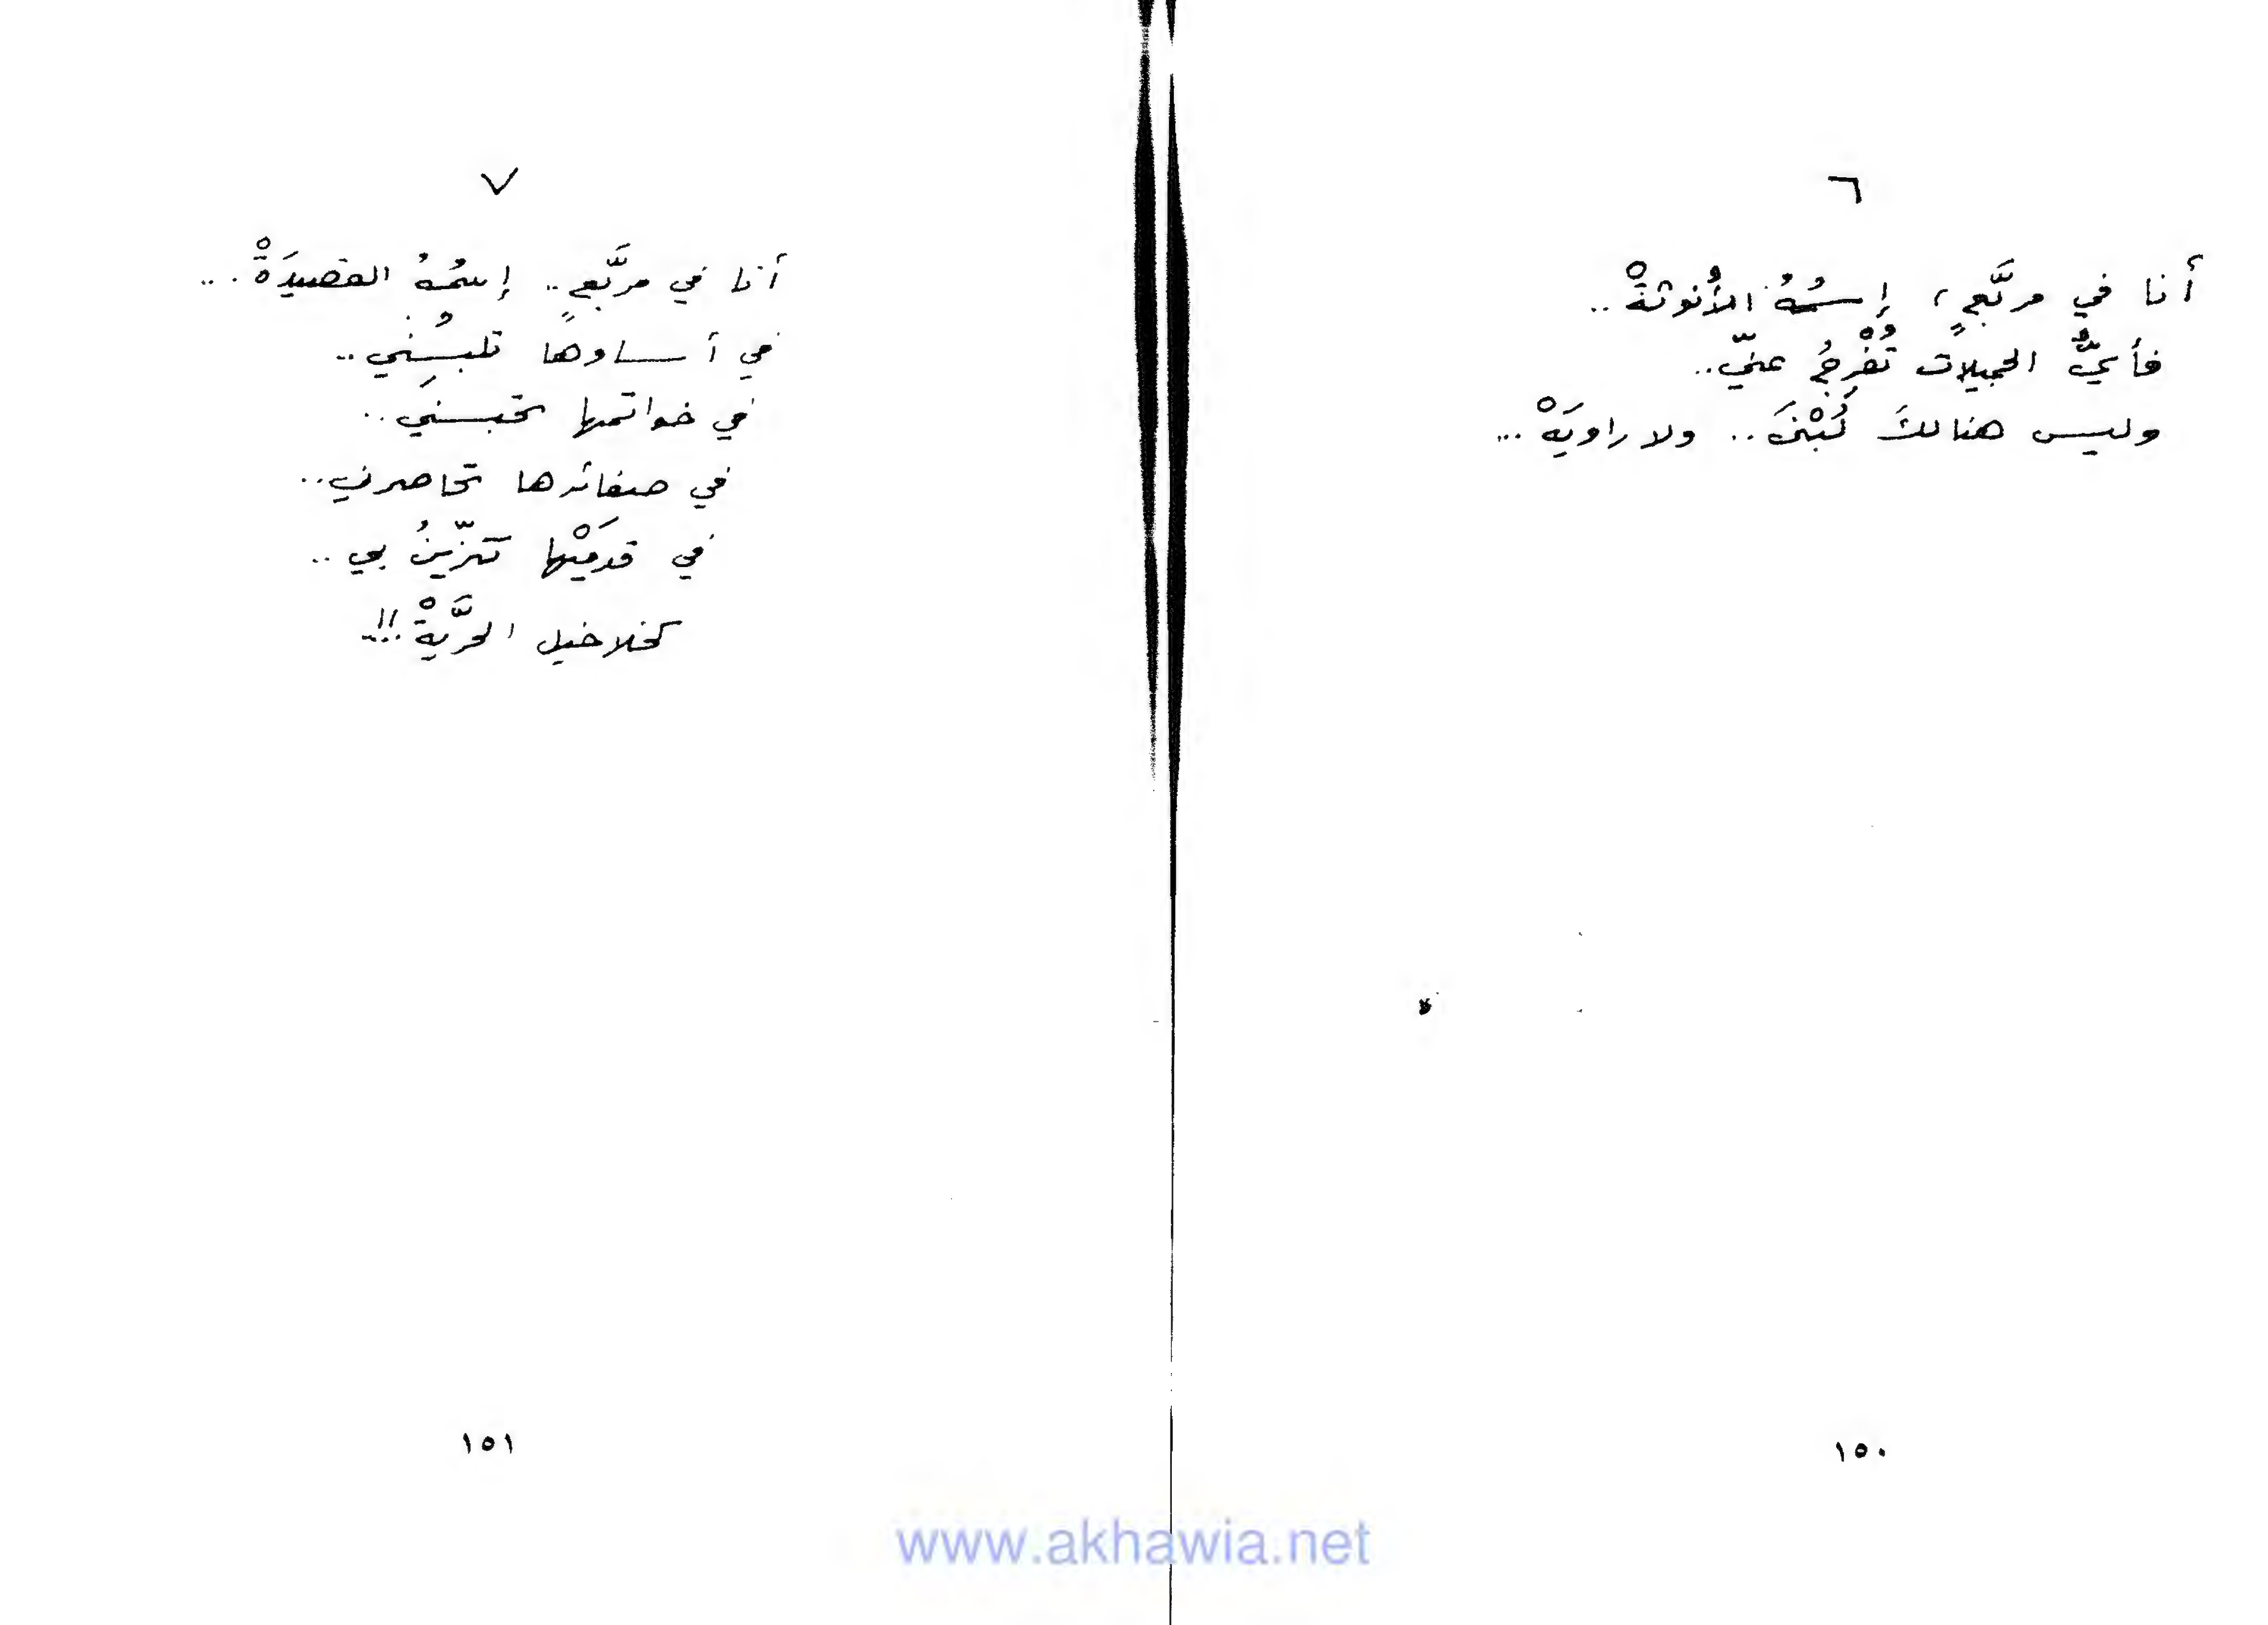 ٦
أنا في مربَّعٍ، إسمُهُ الأُنوثةْ..
فأيُّ الجميلات تُفْرِجُ عنّي..
وليس هنالكَ لُبْنَى.. ولا راويَهْ...
١٥٠
٧
أنا في مربَّعٍ.. إسمُهُ القصيدَةْ...
في أساورها تلبسُني..
في خواتمها تحبسني..
في ضفائرها تحاصرني..
في قدمَيْها تتزّينُ بي..
كخلاخيل الحرَّيةْ...!!
١٥١
www.akhawia.net